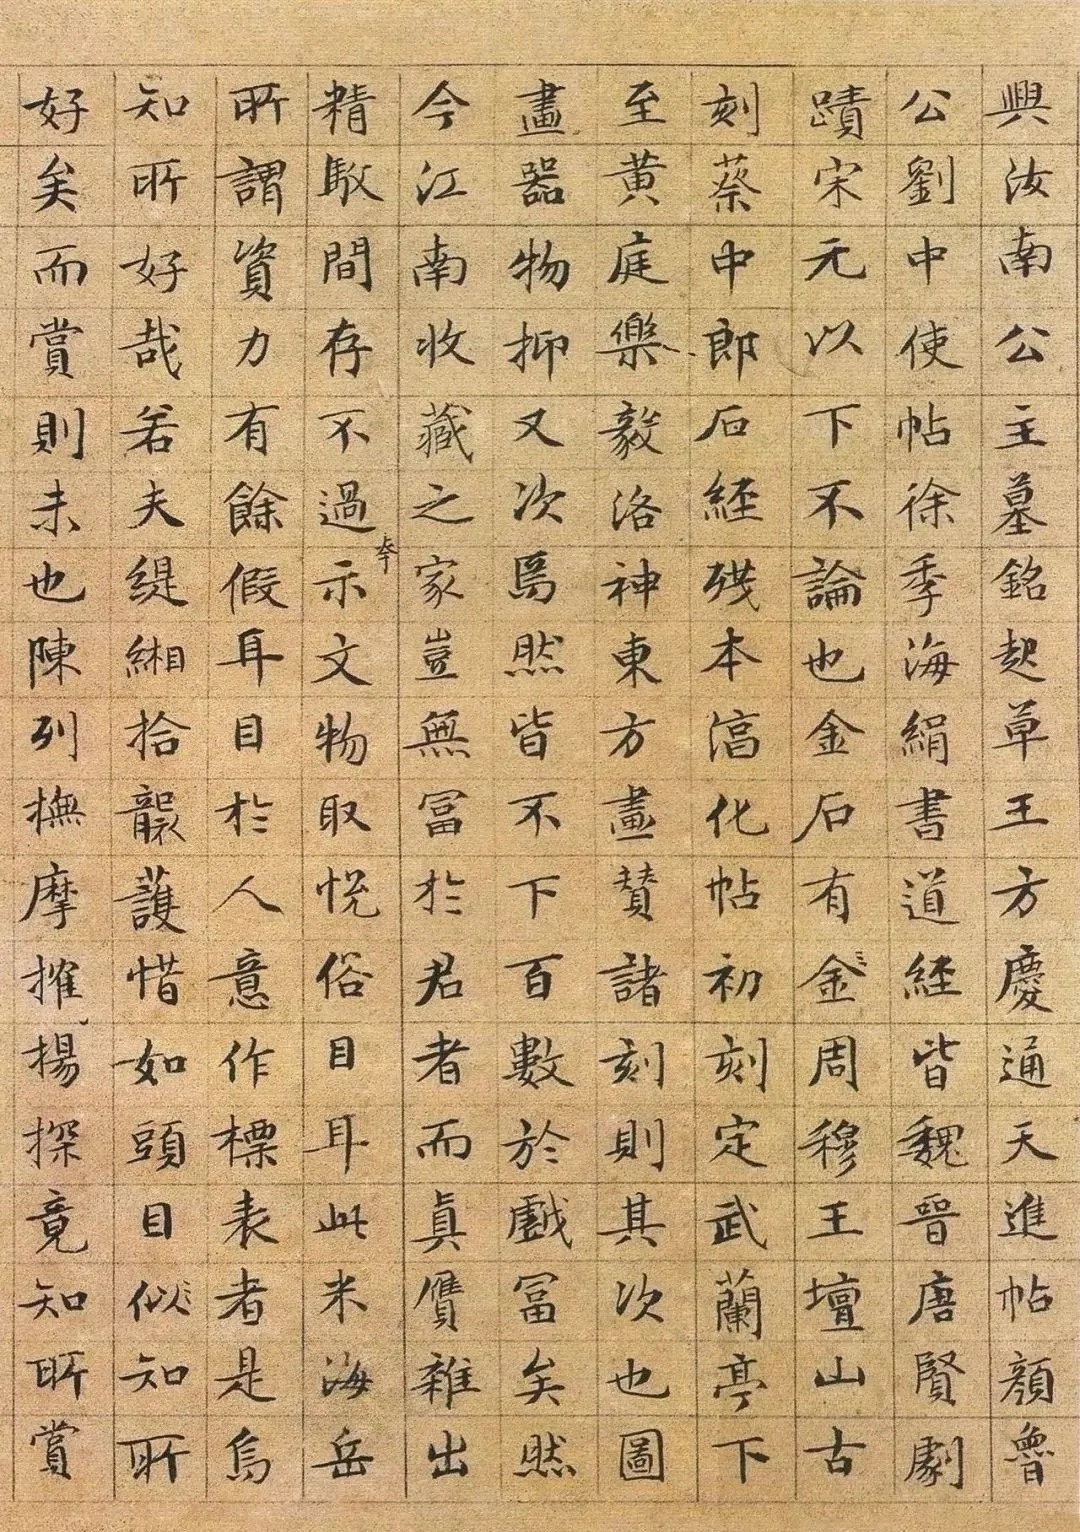 興汝南公主墓銘起草王方慶通天進帖顏魯
公劉中使帖徐季海絹書道經皆魏晉唐賢劇
蹟宋元以下不論也金石有金周穆王壇山古
刻蔡中郎石經殘本淳化帖初刻定武蘭亭下
至黃庭樂毅洛神東方畫贊諸刻則其次也圖
畫器物抑又次焉然皆不下百數於戲富矣然
今江南收藏之家豈無富於君者而真贋雜出
精駁間存不過夲示文物取悅俗目耳此米海岳
所謂資力有餘假耳目於人意作標表者是烏
知所好哉若夫緹緗拾襲護惜如頭目似知所
好矣而賞則未也陳列撫摩搉揚探竟知所賞